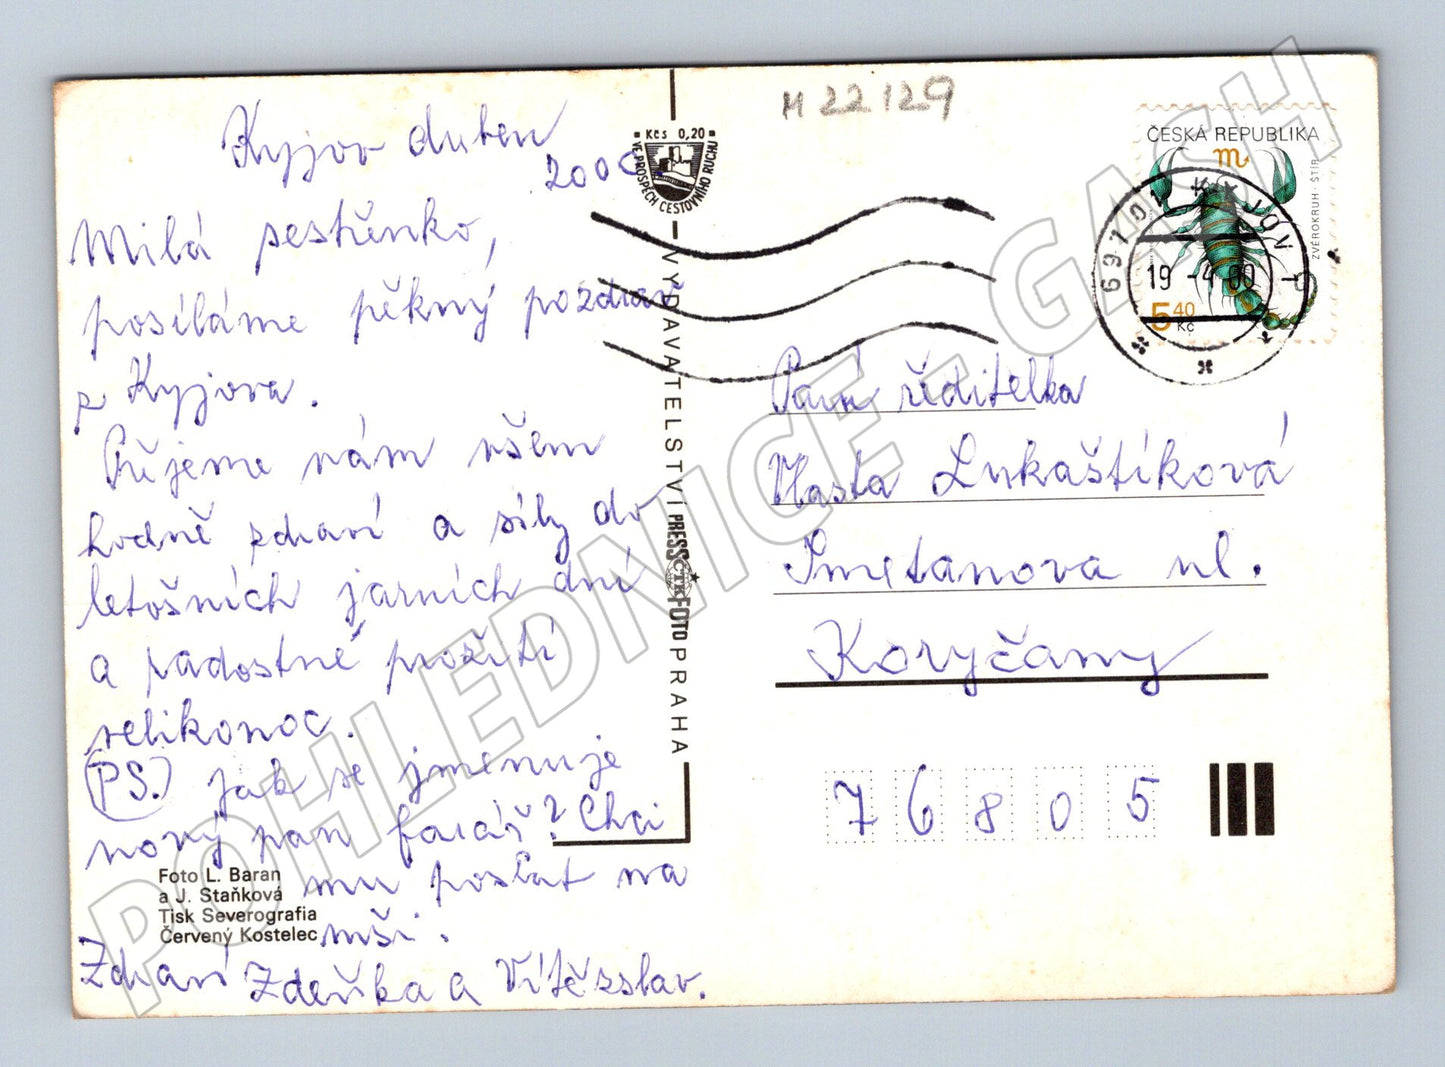 Kyjov duben
2000.
Milá sestřenko,
posíláme pěkný pozdrav
z Kyjova.
Přejeme vám všem
hodně zdraví a síly do
letošních jarních dní
a radostné prožití
velikonoc.
(PS.) jak se jmenuje
nový pan farář? Chci
mu poslat na
mši.
Zdraví Zdeňka a Vítězslav.
Foto L. Baran
a J. Staňková
Tisk Severografia
Červený Kostelec
Kčs 0,20
VE PROSPĚCH CESTOVNÍHO RUCHU
VYDAVATELSTVÍ PRESSFOTO PRAHA
ČTK
M 22129
ČESKÁ REPUBLIKA
ZVĚROKRUH · ŠTÍR
5 40
Kč
697 01 KYJOV 1
19 -4.00
Paní ředitelka
Vlasta Lukaštíková
Smetanova ul.
Koryčany
76805
POHLEDNICE - GASH